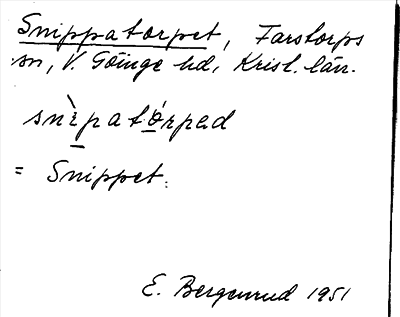 Snippatorpet, Farstorps
sn, V. Göinge hd, Krist. län.
snìpatórpad
= Snippet.
E. Bergenrud 1951